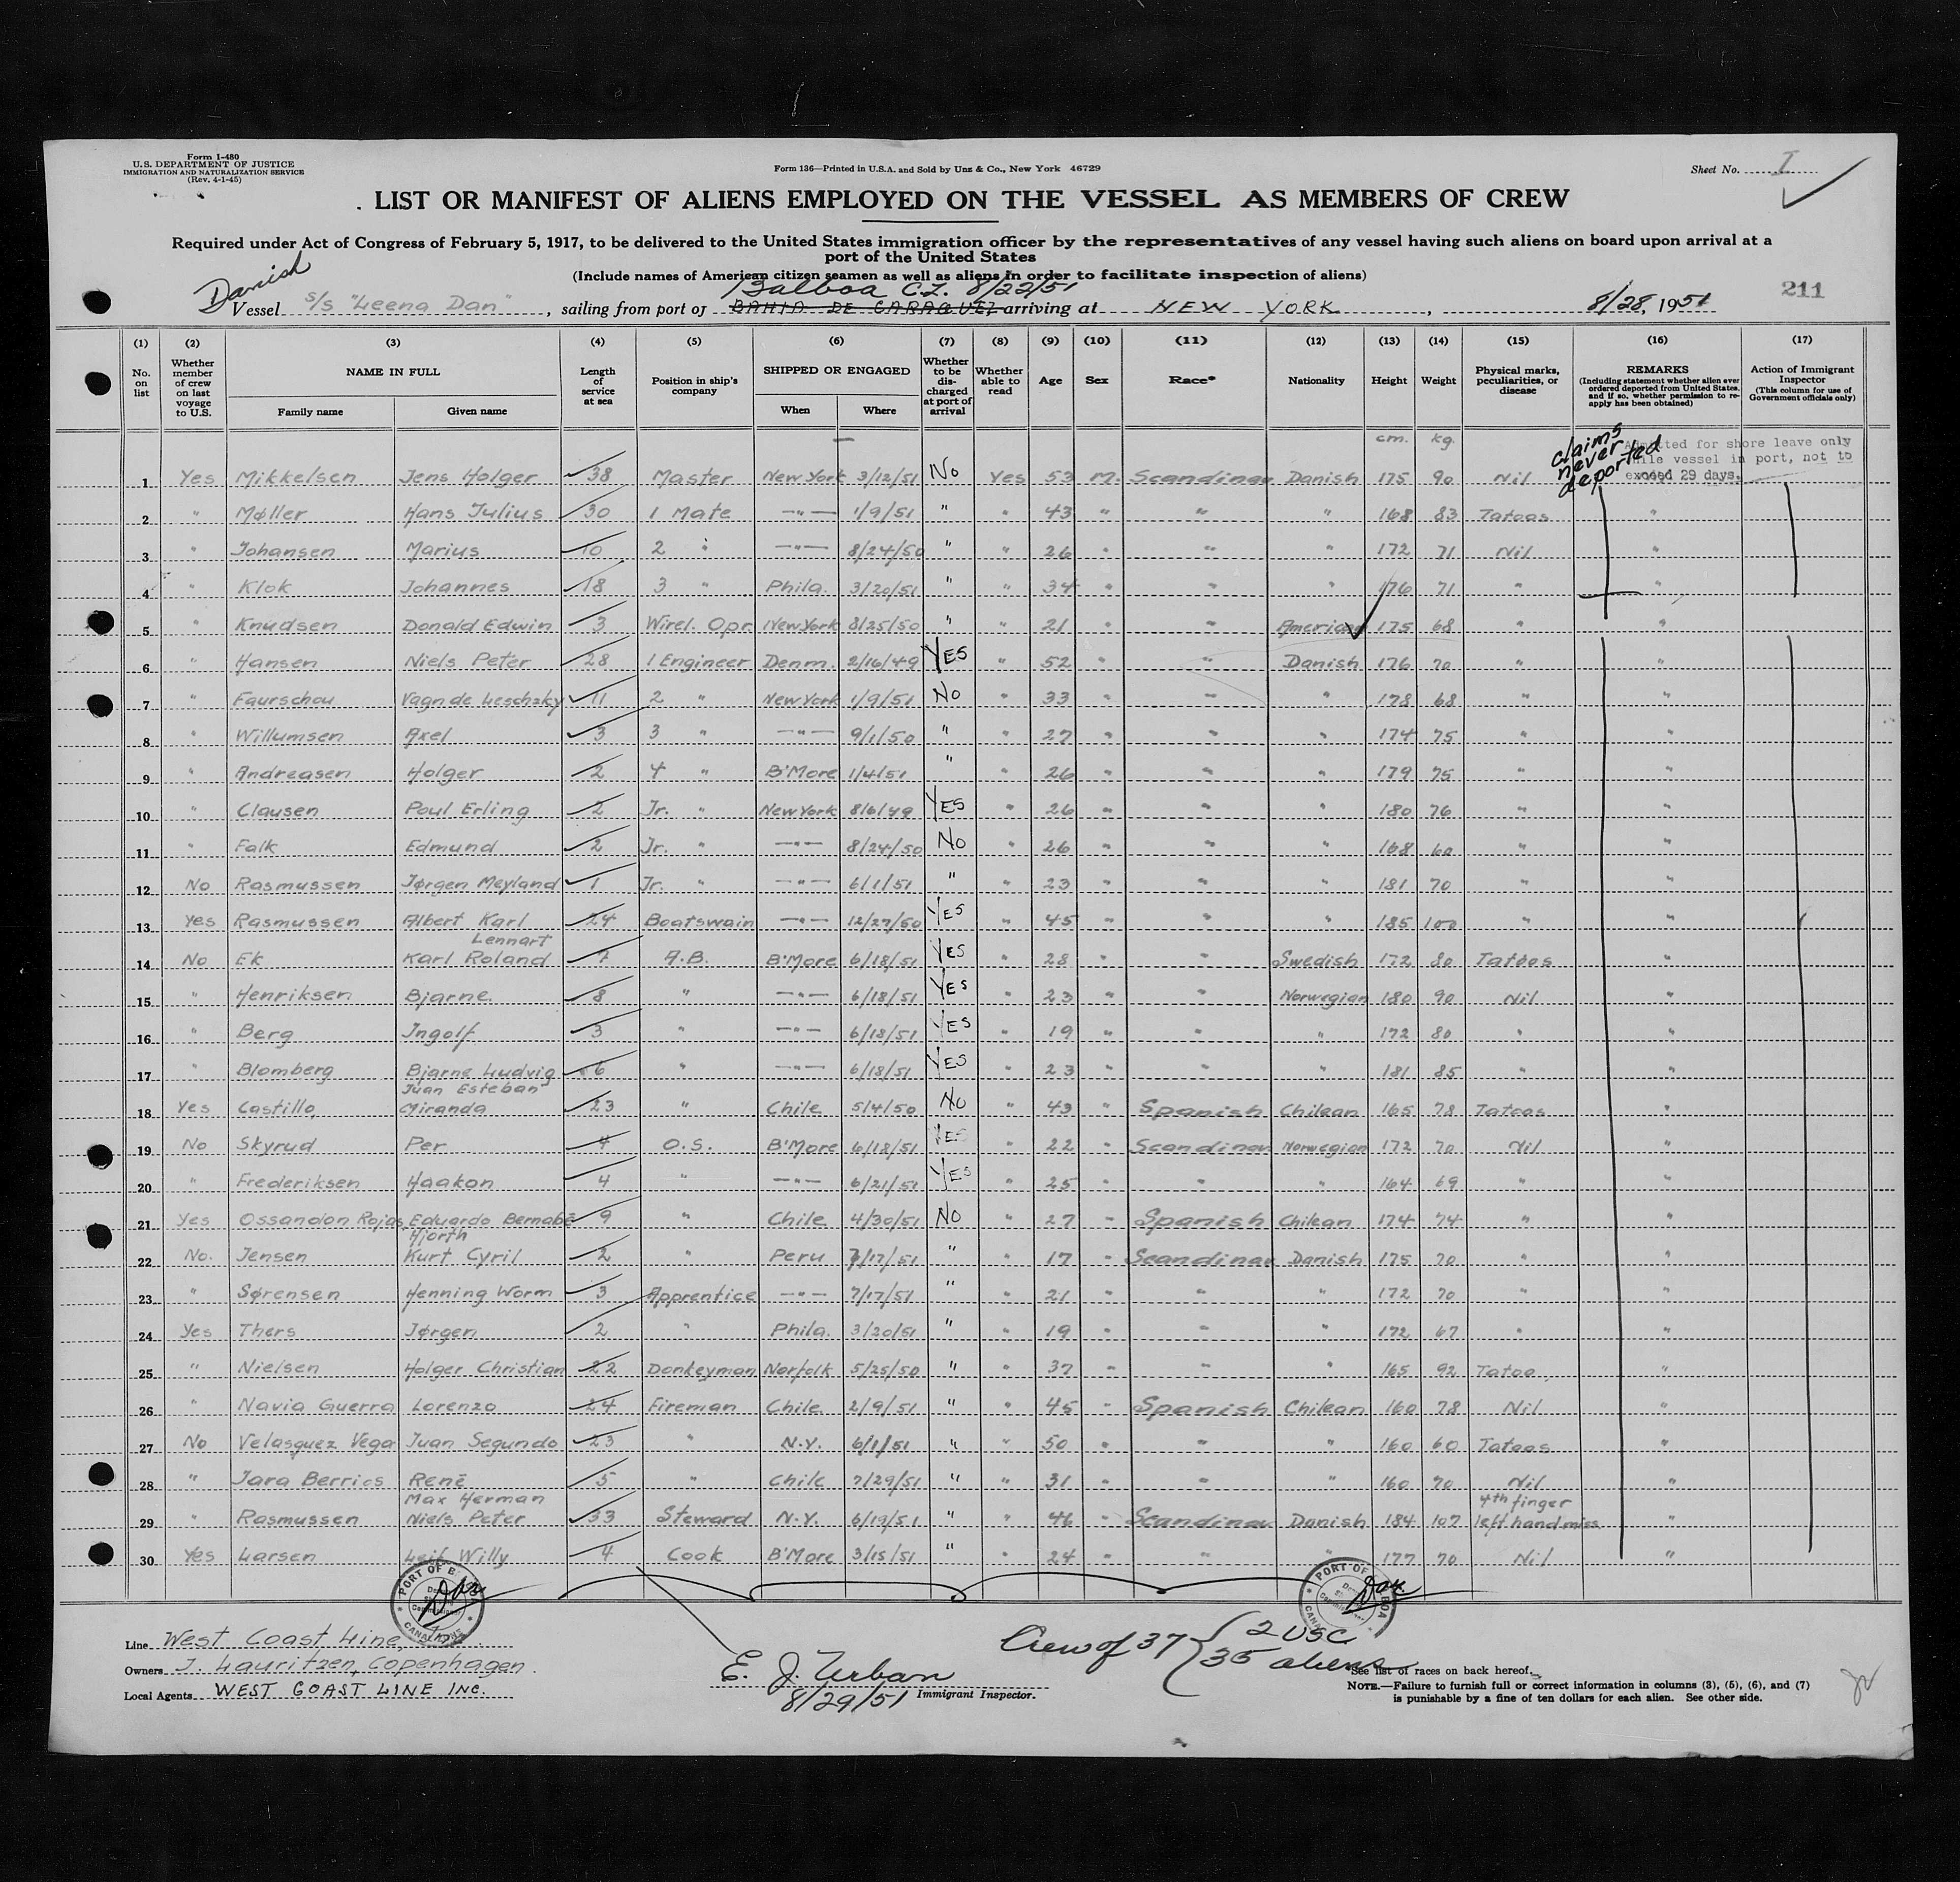 Form I-480
U.S. DEPARTMENT OF JUSTICE
IMMIGRATION AND NATURALIZATION SERVICE
(Rev. 4-1-45)
Form 136—Printed in U.S.A. and Sold by Unz & Co., New York 46729
Sheet No. I
LIST OR MANIFEST OF ALIENS EMPLOYED ON THE VESSEL AS MEMBERS OF CREW
Required under Act of Congress of February 5, 1917, to be delivered to the United States immigration officer by the representatives of any vessel having such aliens on board upon arrival at a
port of the United States
(Include names of American citizen seamen as well as aliens in order to facilitate inspection of aliens)
Danish Balboa C.Z. 8/22/51
Vessel S/S "Leena Dan", sailing from port of BAHIA DE CARAQUEZ arriving at NEW YORK, 8/28, 1951 211
(1) (2) (3) (4) (5) (6) (7) (8) (9) (10) (11) (12) (13) (14) (15) (16) (17)
No. on list
Whether member of crew on last voyage to U.S.
NAME IN FULL
Family name Given name
Length of service at sea
Position in ship's company
SHIPPED OR ENGAGED
When Where
Whether to be discharged at port of arrival
Whether able to read
Age
Sex
Race*
Nationality
Height
Weight
Physical marks, peculiarities, or disease
REMARKS
(Including statement whether alien ever ordered deported from United States, and if so, whether permission to reapply has been obtained)
Action of Immigrant Inspector
(This column for use of Government officials only)
cm. kg.
claims never deported
Admitted for shore leave only
while vessel in port, not to
exceed 29 days.
1 Yes Mikkelsen Jens Holger 38 Master New York 3/12/51 No Yes 53 M. Scandinav Danish 175 90 Nil
2 " Møller Hans Julius 30 1 Mate —"— 1/9/51 " " 43 " " " 168 83 Tatoos "
3 " Johansen Marius 10 2 " —"— 8/24/50 " " 26 " " " 172 71 Nil "
4 " Klok Johannes 18 3 " Phila. 3/20/51 " " 34 " " " 176 71 " "
5 " Knudsen Donald Edwin 3 Wirel. Opr. New York 8/25/50 " " 21 " " American 175 68 " "
6 " Hansen Niels Peter 28 1 Engineer Denm. 2/16/49 YES " 52 " " Danish 176 70 " "
7 " Faurschou Vagn de Leschzky 11 2 " New York 1/9/51 No " 33 " " " 178 68 " "
8 " Willumsen Axel 3 3 " —"— 9/1/50 " " 27 " " " 174 75 " "
9 " Andreasen Holger 2 4 " B'More 1/4/51 " " 26 " " " 179 75 " "
10 " Clausen Poul Erling 2 Jr. " New York 8/6/49 YES " 26 " " " 180 76 " "
11 " Falk Edmund 2 Jr. " —"— 8/24/50 No " 26 " " " 168 60 " "
12 No Rasmussen Jørgen Meyland 1 Jr. " —"— 6/1/51 " " 23 " " " 181 70 " "
13 Yes Rasmussen Albert Karl 24 Boatswain —"— 12/27/50 YES " 45 " " " 185 100 " "
Lennart
14 No Ek Karl Roland 7 A.B. B'More 6/18/51 YES " 28 " " Swedish 172 80 Tatoos "
15 " Henriksen Bjarne 8 " —"— 6/18/51 YES " 23 " " Norwegian 180 90 Nil "
16 " Berg Ingolf 3 " —"— 6/18/51 YES " 19 " " " 172 80 " "
17 " Blomberg Bjarne Ludvig 6 " —"— 6/18/51 YES " 23 " " " 181 85 " "
Juan Esteban
18 Yes Castillo, Miranda 23 " Chile 5/4/50 No " 43 " Spanish Chilean 165 78 Tatoos "
19 No Skyrud Per 4 O.S. B'More 6/18/51 YES " 22 " Scandinav Norwegian 172 70 Nil "
20 " Frederiksen Haakon 4 " —"— 6/21/51 YES " 25 " " " 164 69 " "
21 Yes Ossandon Rojas, Eduardo Bernabé 9 " Chile 4/30/51 No " 27 " Spanish Chilean 174 74 " "
Hjorth
22 No. Jensen Kurt Cyril 2 " Peru 7/17/51 " " 17 " Scandinav Danish 175 70 " "
23 " Sørensen Henning Worm 3 Apprentice —"— 7/17/51 " " 21 " " " 172 70 " "
24 Yes Thers Jørgen 2 " Phila. 3/20/51 " " 19 " " " 172 67 " "
25 " Nielsen Holger Christian 22 Donkeyman Norfolk 5/25/50 " " 37 " " " 165 92 Tatoo "
26 " Navia Guerra Lorenzo 24 Fireman Chile 2/9/51 " " 45 " Spanish Chilean 160 78 Nil "
27 No Velasquez Vega Juan Segundo 23 " N.Y. 6/1/51 " " 50 " " " 160 60 Tatoos "
28 " Jara Berrios René 5 " Chile 7/29/51 " " 31 " " " 160 70 Nil "
Max Herman 4th finger
29 " Rasmussen Niels Peter 33 Steward N.Y. 6/19/51 " " 46 " Scandinav Danish 184 107 left hand miss "
30 Yes Larsen Leif Willy 4 Cook B'More 3/15/51 " " 24 " " " 177 70 Nil "
PORT OF BALBOA
CANAL ZONE
PORT OF BALBOA
CANAL ZONE
Line West Coast Line, Inc.
Owners J. Lauritzen, Copenhagen.
Local Agents WEST COAST LINE INC.
E. J. Urban
8/29/51 Immigrant Inspector.
Crew of 37 { 2 USC
35 aliens
*See list of races on back hereof.
NOTE.—Failure to furnish full or correct information in columns (3), (5), (6), and (7)
is punishable by a fine of ten dollars for each alien. See other side.